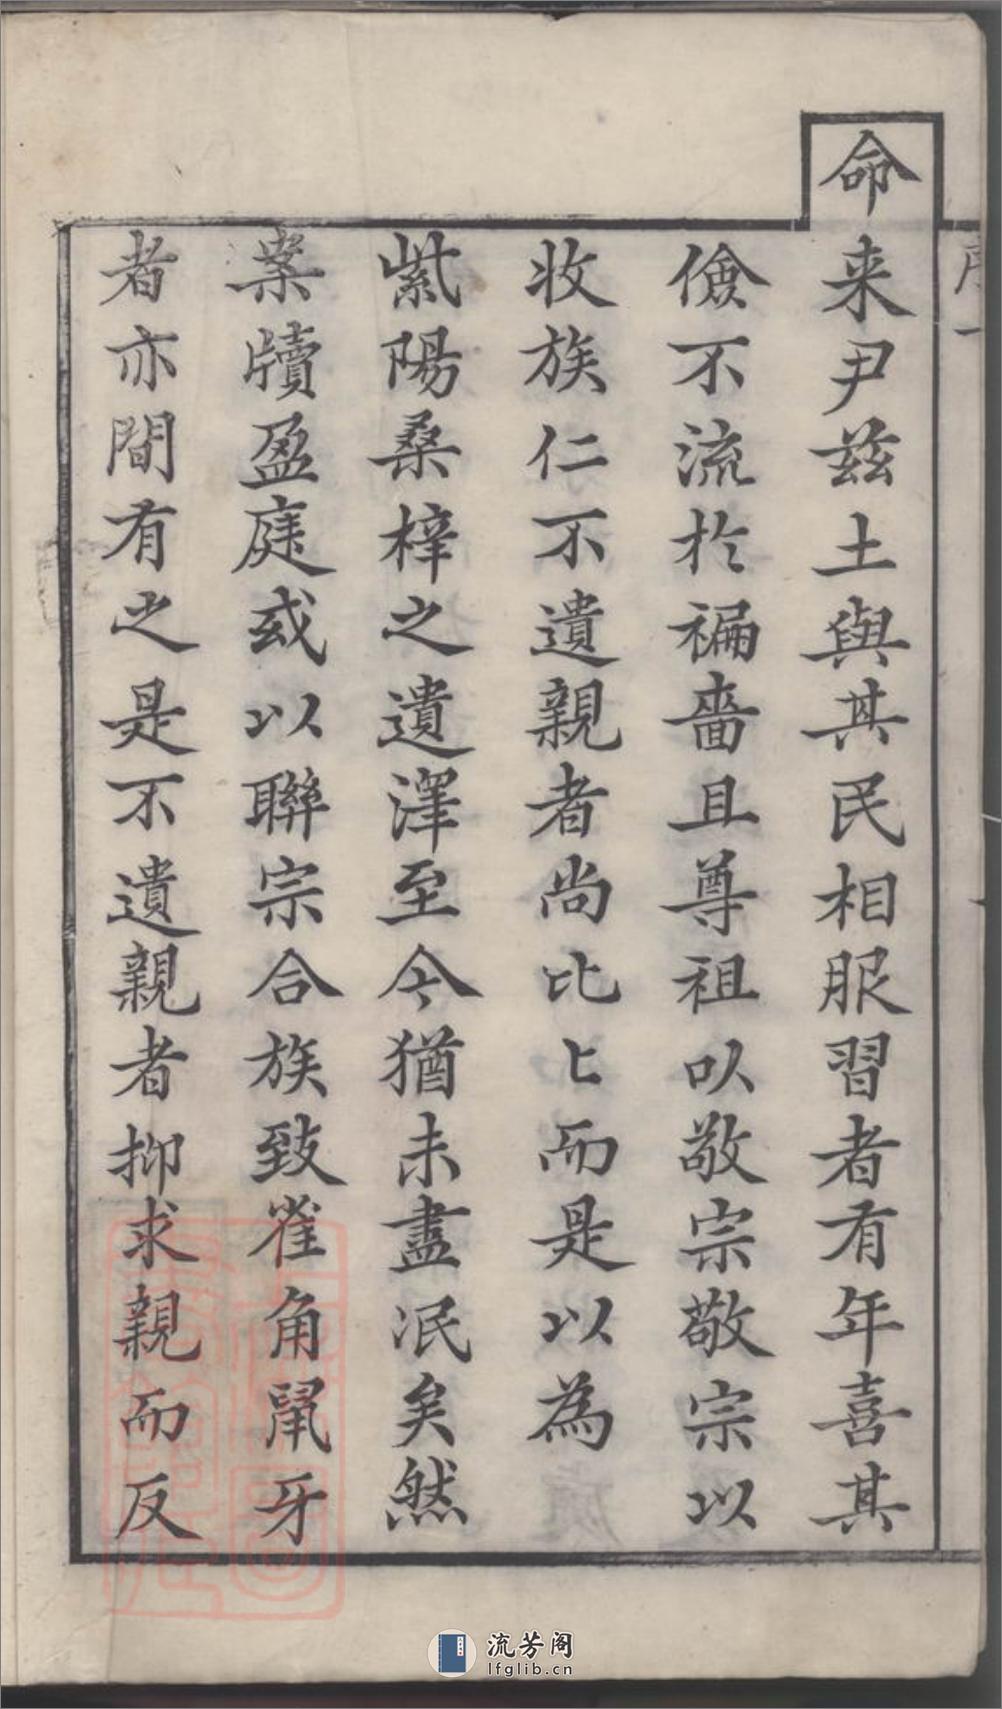 命来尹兹土與其民相服習者有年喜其
儉不流於褊嗇且尊祖以敬宗敬宗以
收族仁不遺親者尚比比而是以為
紫陽桑梓之遺澤至今猶未盡泯矣然
案牘盈庭或以聯宗合族致雀角鼠牙
者亦間有之是不遺親者抑求親而反
流芳阁
lfglib.cn